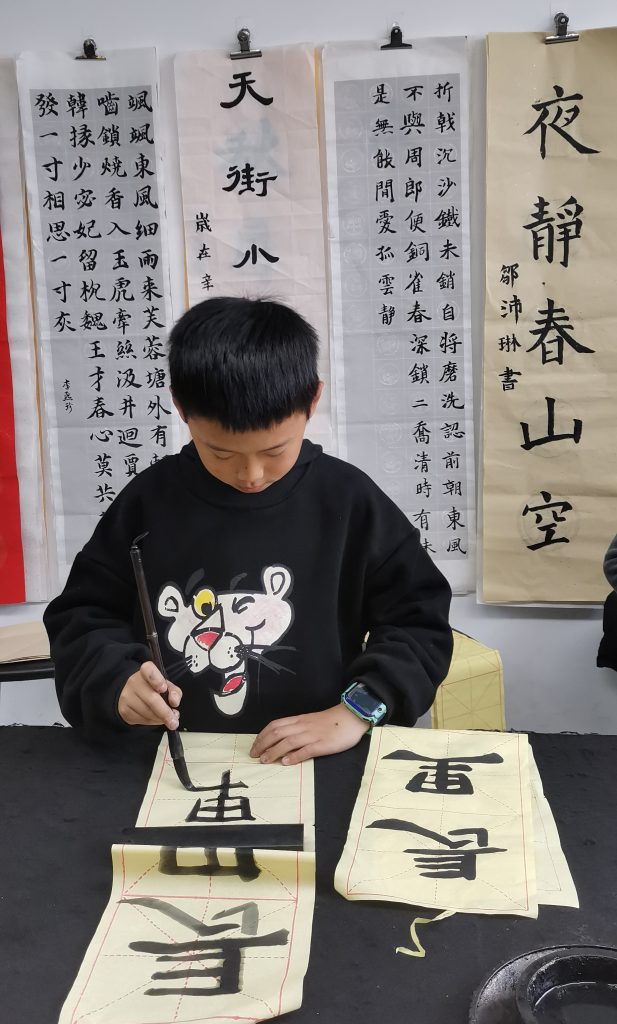 颯颯東風細雨来芙蓉塘外有
嚙鎖燒香入玉虎牽絲汲井迴賈
韓掾少宓妃留枕魏王才春心莫共
發一寸相思一寸灰
天街小
歲在辛
折戟沉沙鐵未銷自將磨洗認前朝東風
不與周郎便銅雀春深鎖二喬清時有
是無能閒愛孤雲靜
夜靜春山空
鄒沛琳書
長
長